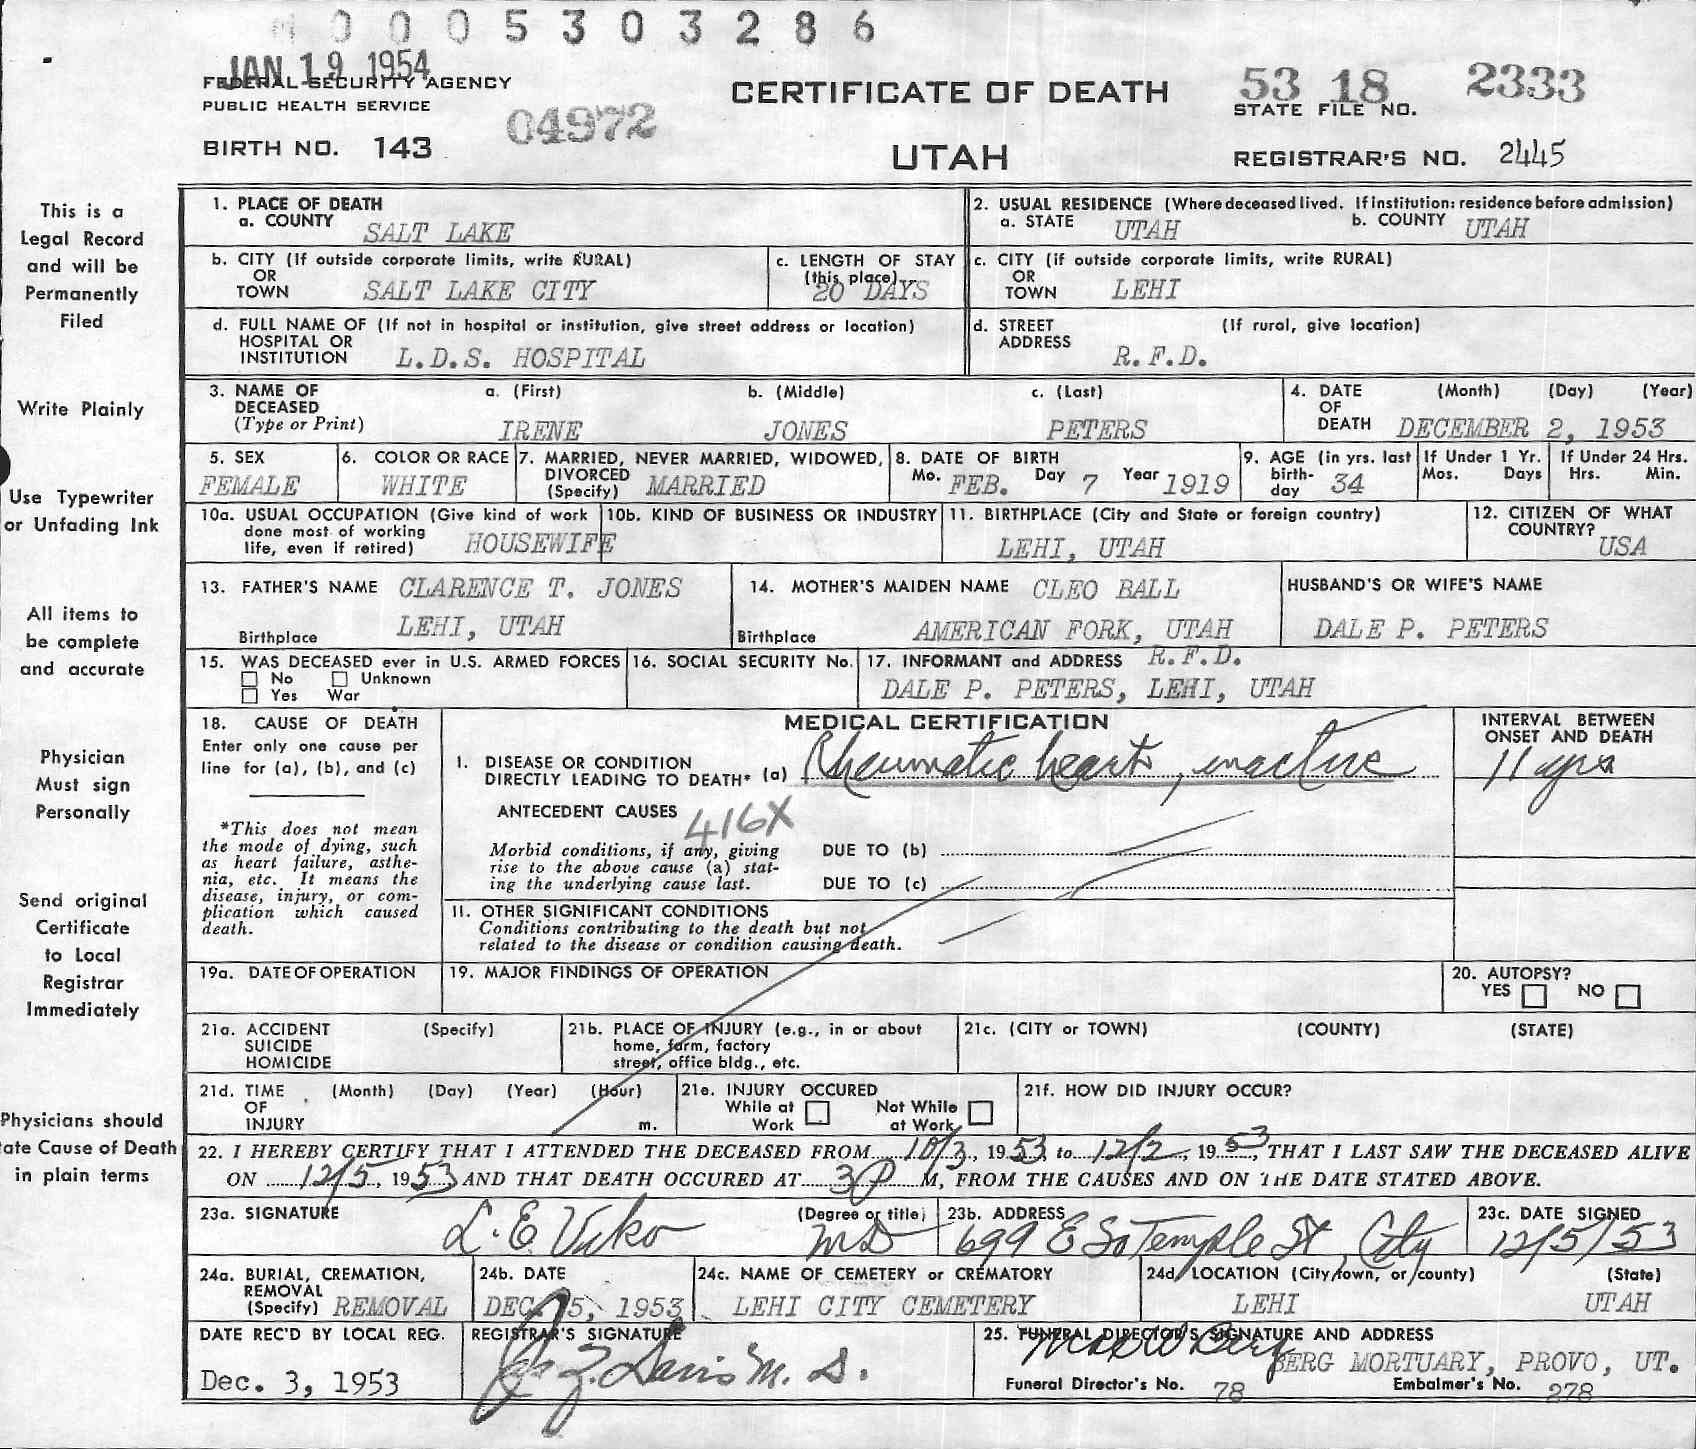 0005303286
JAN 19 1954
FEDERAL SECURITY AGENCY
PUBLIC HEALTH SERVICE
BIRTH NO. 143
04972
CERTIFICATE OF DEATH
UTAH
53 18 2333
STATE FILE NO.
REGISTRAR'S NO. 2445
This is a
Legal Record
and will be
Permanently
Filed
Write Plainly
Use Typewriter
or Unfading Ink
All items to
be complete
and accurate
Physician
Must sign
Personally
Send original
Certificate
to Local
Registrar
Immediately
Physicians should
ate Cause of Death
in plain terms
1. PLACE OF DEATH
a. COUNTY SALT LAKE
2. USUAL RESIDENCE (Where deceased lived. If institution: residence before admission)
a. STATE UTAH b. COUNTY UTAH
b. CITY (If outside corporate limits, write RURAL)
OR
TOWN SALT LAKE CITY
c. LENGTH OF STAY
(this place)
20 DAYS
c. CITY (if outside corporate limits, write RURAL)
OR
TOWN LEHI
d. FULL NAME OF (If not in hospital or institution, give street address or location)
HOSPITAL OR
INSTITUTION L.D.S. HOSPITAL
d. STREET (If rural, give location)
ADDRESS R.F.D.
3. NAME OF a. (First) b. (Middle) c. (Last)
DECEASED
(Type or Print) IRENE JONES PETERS
4. DATE (Month) (Day) (Year)
OF
DEATH DECEMBER 2, 1953
5. SEX
FEMALE
6. COLOR OR RACE
WHITE
7. MARRIED, NEVER MARRIED, WIDOWED,
DIVORCED
(Specify) MARRIED
8. DATE OF BIRTH
Mo. FEB. Day 7 Year 1919
9. AGE (in yrs. last
birth-
day 34
If Under 1 Yr.
Mos. Days
If Under 24 Hrs.
Hrs. Min.
10a. USUAL OCCUPATION (Give kind of work
done most of working
life, even if retired) HOUSEWIFE
10b. KIND OF BUSINESS OR INDUSTRY
11. BIRTHPLACE (City and State or foreign country)
LEHI, UTAH
12. CITIZEN OF WHAT
COUNTRY?
USA
13. FATHER'S NAME CLARENCE T. JONES
Birthplace LEHI, UTAH
14. MOTHER'S MAIDEN NAME CLEO BALL
Birthplace AMERICAN FORK, UTAH
HUSBAND'S OR WIFE'S NAME
DALE P. PETERS
15. WAS DECEASED ever in U.S. ARMED FORCES
No Unknown
Yes War
16. SOCIAL SECURITY No.
17. INFORMANT and ADDRESS R.F.D.
DALE P. PETERS, LEHI, UTAH
18. CAUSE OF DEATH
Enter only one cause per
line for (a), (b), and (c)
*This does not mean
the mode of dying, such
as heart failure, asthe-
nia, etc. It means the
disease, injury, or com-
plication which caused
death.
MEDICAL CERTIFICATION
1. DISEASE OR CONDITION
DIRECTLY LEADING TO DEATH* (a) Rheumatic heart, inactive
ANTECEDENT CAUSES
416X
Morbid conditions, if any, giving
rise to the above cause (a) stat-
ing the underlying cause last.
DUE TO (b)
DUE TO (c)
11. OTHER SIGNIFICANT CONDITIONS
Conditions contributing to the death but not
related to the disease or condition causing death.
INTERVAL BETWEEN
ONSET AND DEATH
11 yrs
19a. DATE OF OPERATION
19. MAJOR FINDINGS OF OPERATION
20. AUTOPSY?
YES NO
21a. ACCIDENT (Specify)
SUICIDE
HOMICIDE
21b. PLACE OF INJURY (e.g., in or about
home, farm, factory
street, office bldg., etc.
21c. (CITY or TOWN) (COUNTY) (STATE)
21d. TIME (Month) (Day) (Year) (Hour)
OF
INJURY m.
21e. INJURY OCCURED
While at Not While
Work at Work
21f. HOW DID INJURY OCCUR?
22. I HEREBY CERTIFY THAT I ATTENDED THE DECEASED FROM 10/3, 1953 to 12/2, 1953, THAT I LAST SAW THE DECEASED ALIVE
ON 12/5, 1953 AND THAT DEATH OCCURED AT 3P M, FROM THE CAUSES AND ON THE DATE STATED ABOVE.
23a. SIGNATURE (Degree or title)
L. E. Viko MD
23b. ADDRESS
699 E So Temple St, City
23c. DATE SIGNED
12/5/53
24a. BURIAL, CREMATION,
REMOVAL
(Specify) REMOVAL
24b. DATE
DEC. 5, 1953
24c. NAME OF CEMETERY or CREMATORY
LEHI CITY CEMETERY
24d. LOCATION (City, town, or county) (State)
LEHI UTAH
DATE REC'D BY LOCAL REG.
Dec. 3, 1953
REGISTRAR'S SIGNATURE
Davis M. D.
25. FUNERAL DIRECTOR'S SIGNATURE AND ADDRESS
Berg
BERG MORTUARY, PROVO, UT.
Funeral Director's No. 78 Embalmer's No. 278